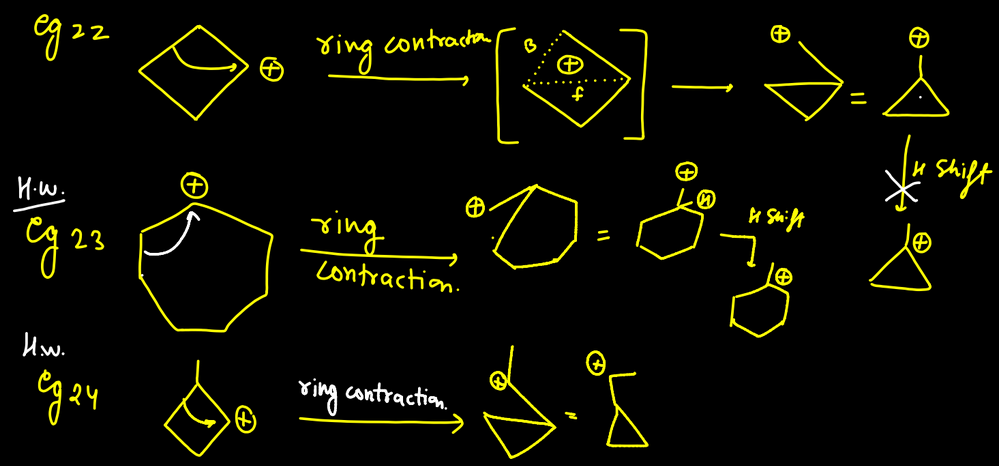 eg 22
ring contraction
B
⊕
f
⊕
⊕
⊕
=
H shift
⊕
H.W.
eg 23
⊕
ring
contraction.
⊕
=
⊕
H
H shift
⊕
H.w.
eg 24
⊕
ring contraction.
⊕
=
⊕